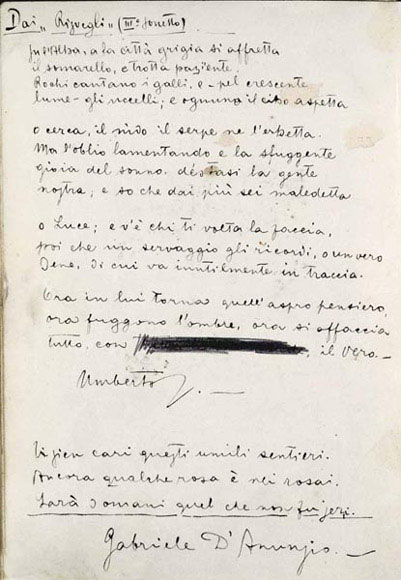 Dai „Risvegli" (III° sonetto)
In su l'Alba, a la città grigia si affretta
il somarello, e trotta paziente.
Rochi cantano i galli, e - pel crescente
lume - gli uccelli; e ognuno il cibo aspetta
o cerca, il nido il serpe ne l'erbetta.
Ma l'oblio lamentando e la sfuggente
gioia del sonno. déstasi la gente
nostra; e so che dai più sei maledetta
o Luce; e v'è chi ti volta la faccia,
poi che un servaggio gli ricordi, o un vero
Bene, di cui va inutilmente in traccia.
Ora in lui torna quell'aspro pensiero,
ora fuggono l'ombre, ora si affaccia
tutto, con il Vero. —
Umberto
Vi sien cari questi umili sentieri.
Ancora qualche rosa è nei rosai.
Sarà domani quel che non fu jeri.
Gabriele D'Anunzio. —